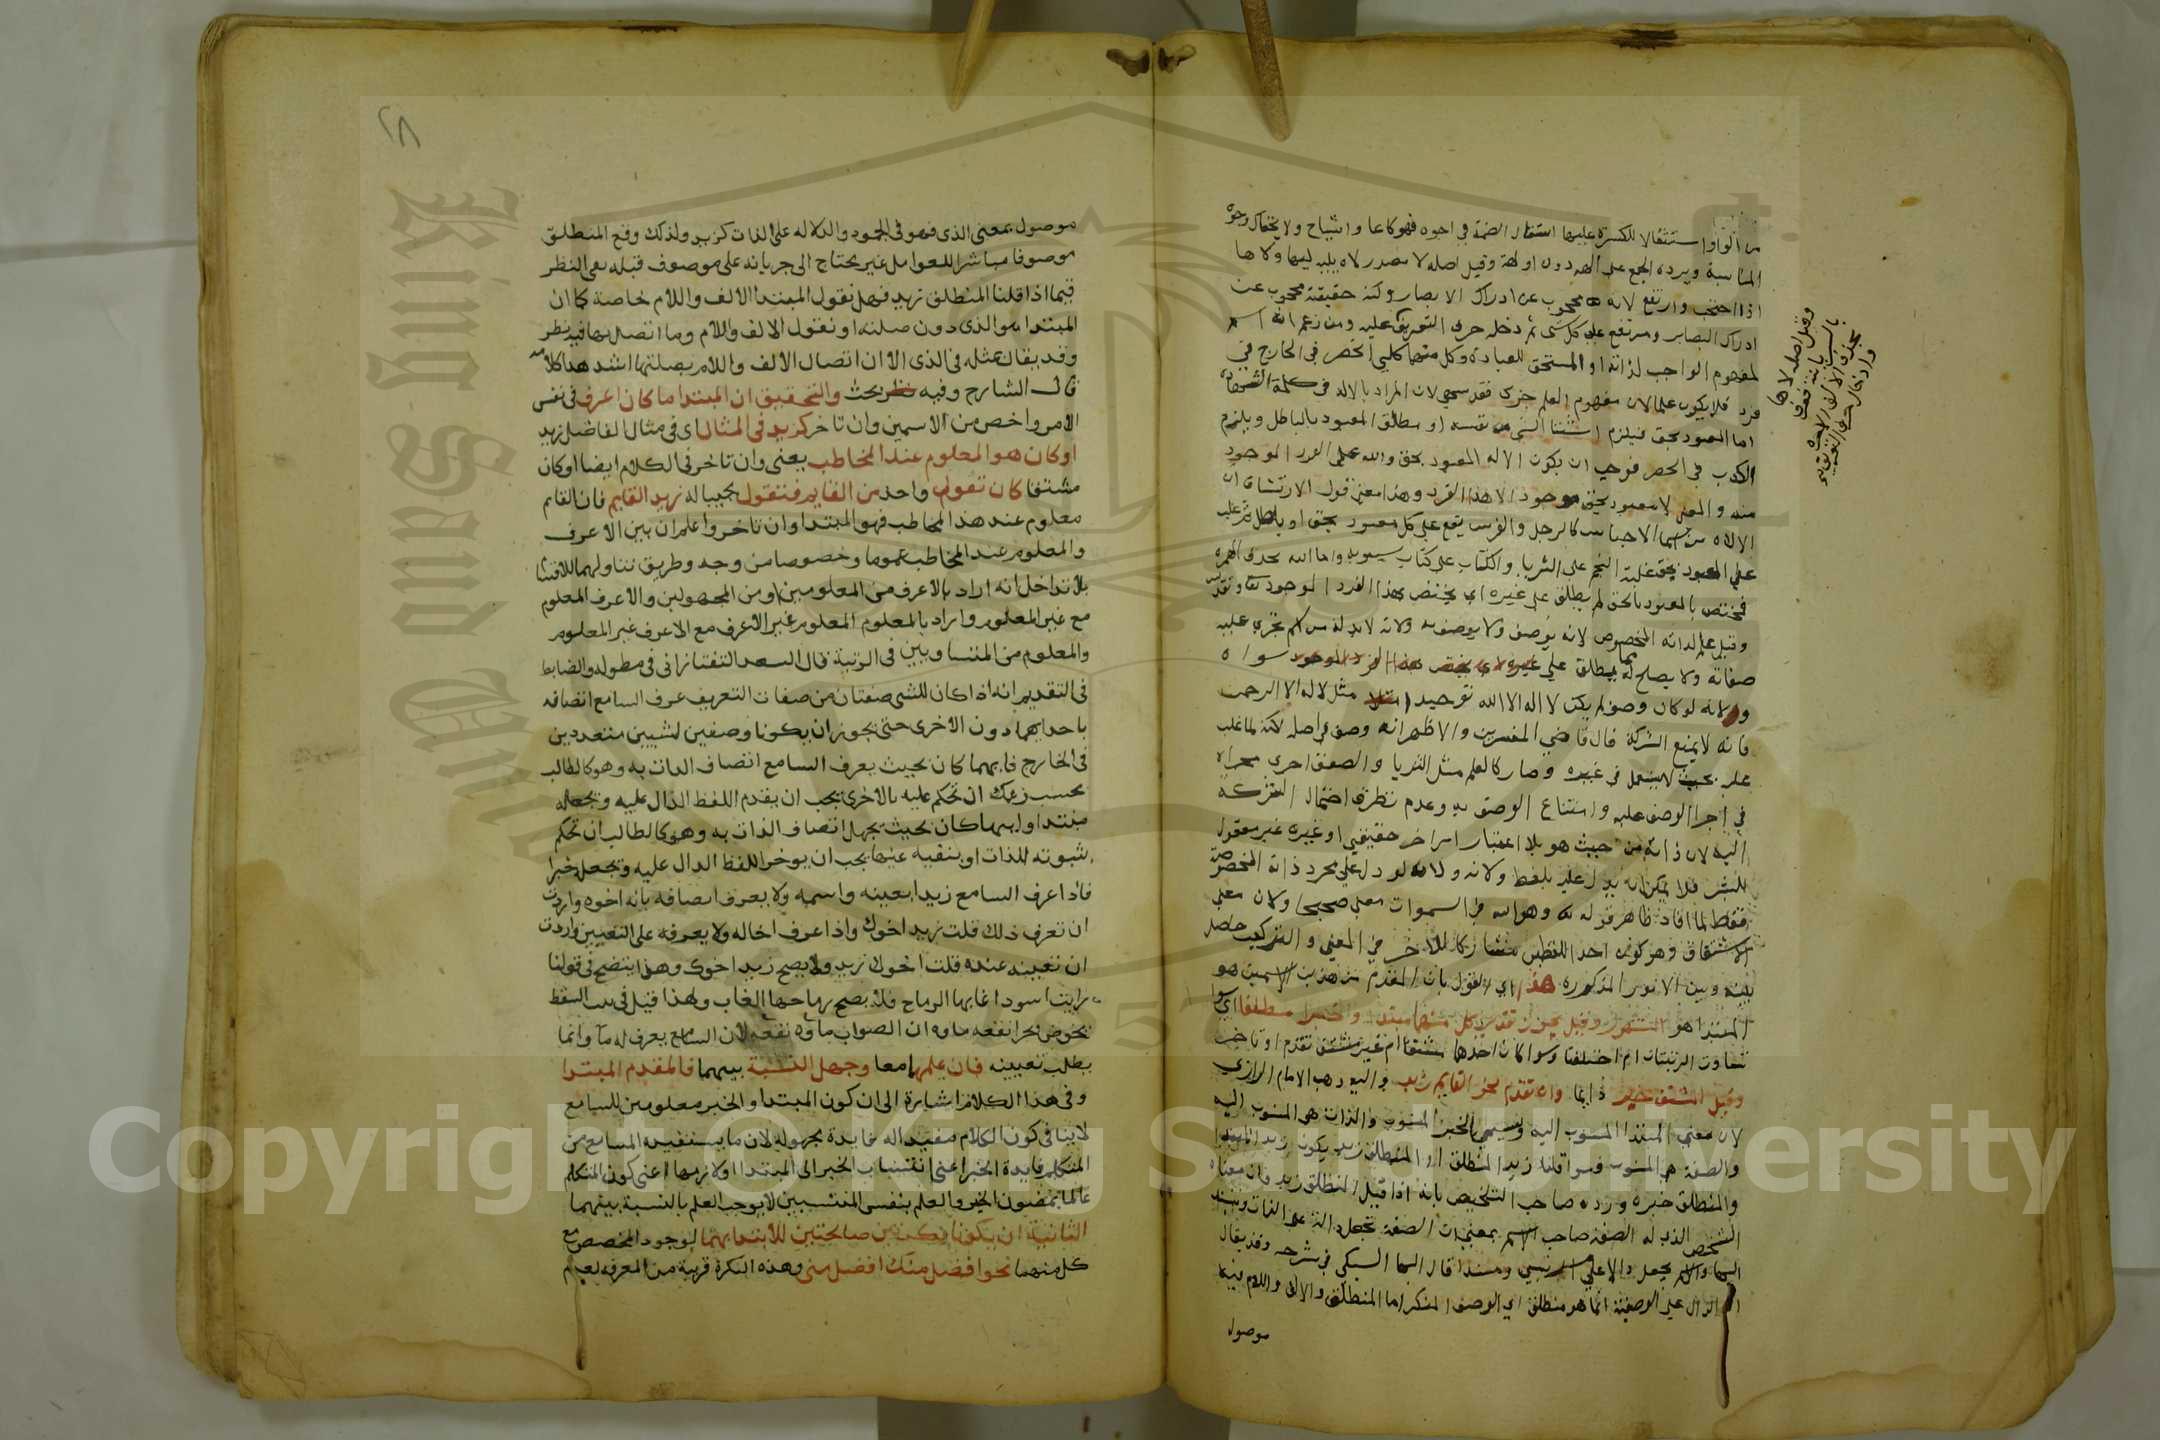 من الواو استثقالا للكسرة عليها استثقال الضمة في اجوه فهو كاعا واشاح ولا يخفاك وجوه
المناسبة ويرده الجمع على الهه دون اولهة وقيل اصله لاه مصدر لاه يليه ليها ولاها
اذا احتجب وارتفع لانه محجوب عن ادراك الابصار وكنه حقيقته محجوب عن
ادراك البصاير ومرتفع على كل شي ثم دخله حرف التعريف عليه ومن زعم انه اسم
لمفهوم الواجب لذاته او المستحق للعبادة وكل منهما كلي انحصر في الخارج في
فرد فلا يكون علما لان مفهوم العلم جزئ فقد سهى لان المراد بالاله في كلمة الشهادة
اما المعبود بحق فيلزم استثنا الشي من نفسه او مطلق المعبود بالباطل ويلزم
الكذب في الحصر فوجب ان يكون الاله المعبود بحق والله علم الفرد الموجود
منه والمعنى لا معبود بحق موجود الا هذا الفرد وهذا معنى قول الارتشاف ان
الالاه من اسما الاجناس كالرجل والفرس يقع على كل معبود بحق او باطل ثم غلب
على المعبود بحق غلبة النجم على الثريا والكتاب على كتاب سيبويه واما الله بحذف الهمزه
فمختص بالمعبود بالحق لم يطلق على غيره اي يختص بهذا الفرد الموجود تعالى وتقدس
وقيل علم لذاته المخصوص لانه يوصف ولا يوصف به ولانه لابد له من اسم تجري عليه
صفاته ولا يصلح له مما يطلق عليه سواه
ولانه لو كان وصفا لم يكن لا اله الا الله توحيدا مثل لا اله الا الرحمن
فانه لا يمنع الشركة قال قاضي المفسرين والاظهر انه وصف في اصله لكنه لما غلب
عليه بحيث لا يستعمل في غيره وصار كالعلم مثل الثريا والصعق اجري مجراه
في اجرا الوصف عليه وامتناع الوصف به وعدم تطرق احتمال الشركة
اليه لان ذاته من حيث هو بلا اعتبار امر اخر حقيقي او غيره غير معقول
للبشر فلا يمكن ان يدل عليه بلفظ ولانه لو دل على مجرد ذاته المخصوصة
فقط لما افاد ظاهر قوله تعالى وهو الله في السموات معنى صحيحا ولان معنى
الاشتقاق وهو كون احد اللفظين مشاركا للاخر في المعنى والتركيب حاصل
بينه وبين الاصول المذكوره هذا اي القول بان المقدم من هذين الاسمين هو
المبتدا هو المشهور وقيل يجوز تقدير كل منهما مبتدا وخبرا مطلقا اي سوا
تفاوت الرتبتان ام اختلفتا وسوا كان احدهما مشتقا ام غير مشتق تقدم او تاخر
وقيل المشتق خبر دايما وان تقدم نحو القايم زيد واليه ذهب الامام الرازي
لان معنى المبتدا المنسوب اليه ومعنى الخبر المنسوب والذات هي المنسوب اليه
والصفة هي المنسوب فسوا قلنا زيد المنطلق او المنطلق زيد يكون زيد المبتدا
والمنطلق خبره ورده صاحب التلخيص بانه اذا قيل المنطلق زيد فان معناه
الشخص الذي له الصفة صاحب الاسم بمعنى ان الصفة تجعل دالة على الذات ومسندا
اليها والاسم يجعل دالا على امر نسبي ومسندا قال البها السبكي في شرحه وقد يقال
الدال على الوصفية انما هو منطلق اي الوصف المنكر اما المنطلق والالف واللام فيه
موصول
وقيل اصله لاها
بالسريانية فعرب
بحذف الالف الاخيرة
وادخال حرف التعريف
٢٨
موصول بمعنى الذي فهو في الجمود والدلاله على الذات كزيد ولذلك وقع المنطلق
موصوفا مباشرا للعوامل غير محتاج الى جريانه على موصوف قبله بقى النظر
فيما اذا قلنا المنطلق زيد فهل نقول المبتدا الالف واللام خاصة كما ان
المبتدا هو الذي دون صلته او نقول الالف واللام وما اتصل بهما فيه نظر
وقد يقال بمثله في الذي الا ان اتصال الالف واللام بصلتها اشد هذا كلامه
قال الشارح وفيه بحث والتحقيق ان المبتدا ما كان اعرف في نفس
الامر واخص من الاسمين وان تاخر كزيد في المثال اي في مثال الفاضل زيد
او كان هو المعلوم عند المخاطب يعني وان تاخر في الكلام ايضا او كان
مشتقا كان تقول واحد من القايم فتقول مجيبا له زيد القايم فان القايم
معلوم عند هذا المخاطب فهو المبتدا وان تاخر واعلم ان بين الاعرف
والمعلوم عند المخاطب عموما وخصوصا من وجه وطريق تناولهما للاقسام
بلا تداخل انه اراد بالاعرف من المعلومين او من المجهولين والاعرف المعلوم
مع غير المعلوم واراد بالمعلوم المعلوم غير الاعرف مع الاعرف غير المعلوم
والمعلوم من المتساويين في الرتبة قال السعد التفتازاني في مطوله والضابط
في التقديم انه اذا كان للشي صفتان من صفات التعريف عرف السامع اتصافه
باحدايهما دون الاخرى حتى يجوز ان يكونا وصفين لشيين متعددين
في الخارج فايهما كان بحيث يعرف السامع اتصاف الذات به وهو كالطالب
بحسب زعمك ان تحكم عليه بالاخرى يجب ان يقدم اللفظ الدال عليه وتجعله
مبتدا وايهما كان بحيث يجهل اتصاف الذات به وهو كالطالب ان تحكم
بثبوته للذات او بنفيه عنها يجب ان يوخر اللفظ الدال عليه وتجعل خبرا
فاذا عرف السامع زيدا بعينه واسمه ولا يعرف اتصافه بانه اخوه واردت
ان تعرف ذلك قلت زيد اخوك واذا عرف اخا له ولا يعرفه على التعيين واردت
ان تعينه عنده قلت اخوك زيد ولا يصح زيد اخوك وهذا يتضح في قولنا
رايت اسودا غابها الرماح فلا يصح رماحها الغاب ولهذا قيل في بيت السقط
يخوض بحرا نقعه ماوه ان الصواب ماوه نقعه لان السامع يعرف له ما وانما
يطلب تعيينه فان علمهما معا وجهل النسبة بينهما فالمقدم المبتدا
وفي هذا الكلام اشارة الى ان كون المبتدا والخبر معلومين للسامع
لا ينافي كون الكلام مفيدا له فايدة مجهوله لان ما يستفيده السامع من
المتكلم فايدة الخبر اعني انتساب الخبر الى المبتدا او لازمها اعني كون المتكلم
عالما بمضمون الخبر والعلم بنفس المنتسبين لا يوجب العلم بالنسبة بينهما
الثانية ان يكونا نكرتين صالحتين للابتدا بهما لوجود المخصص مع
كل منهما نحو افضل منك افضل مني وهذه النكرة قريبة من المعرفه لعدم
King Saud University
Copyright © King Saud University
1957